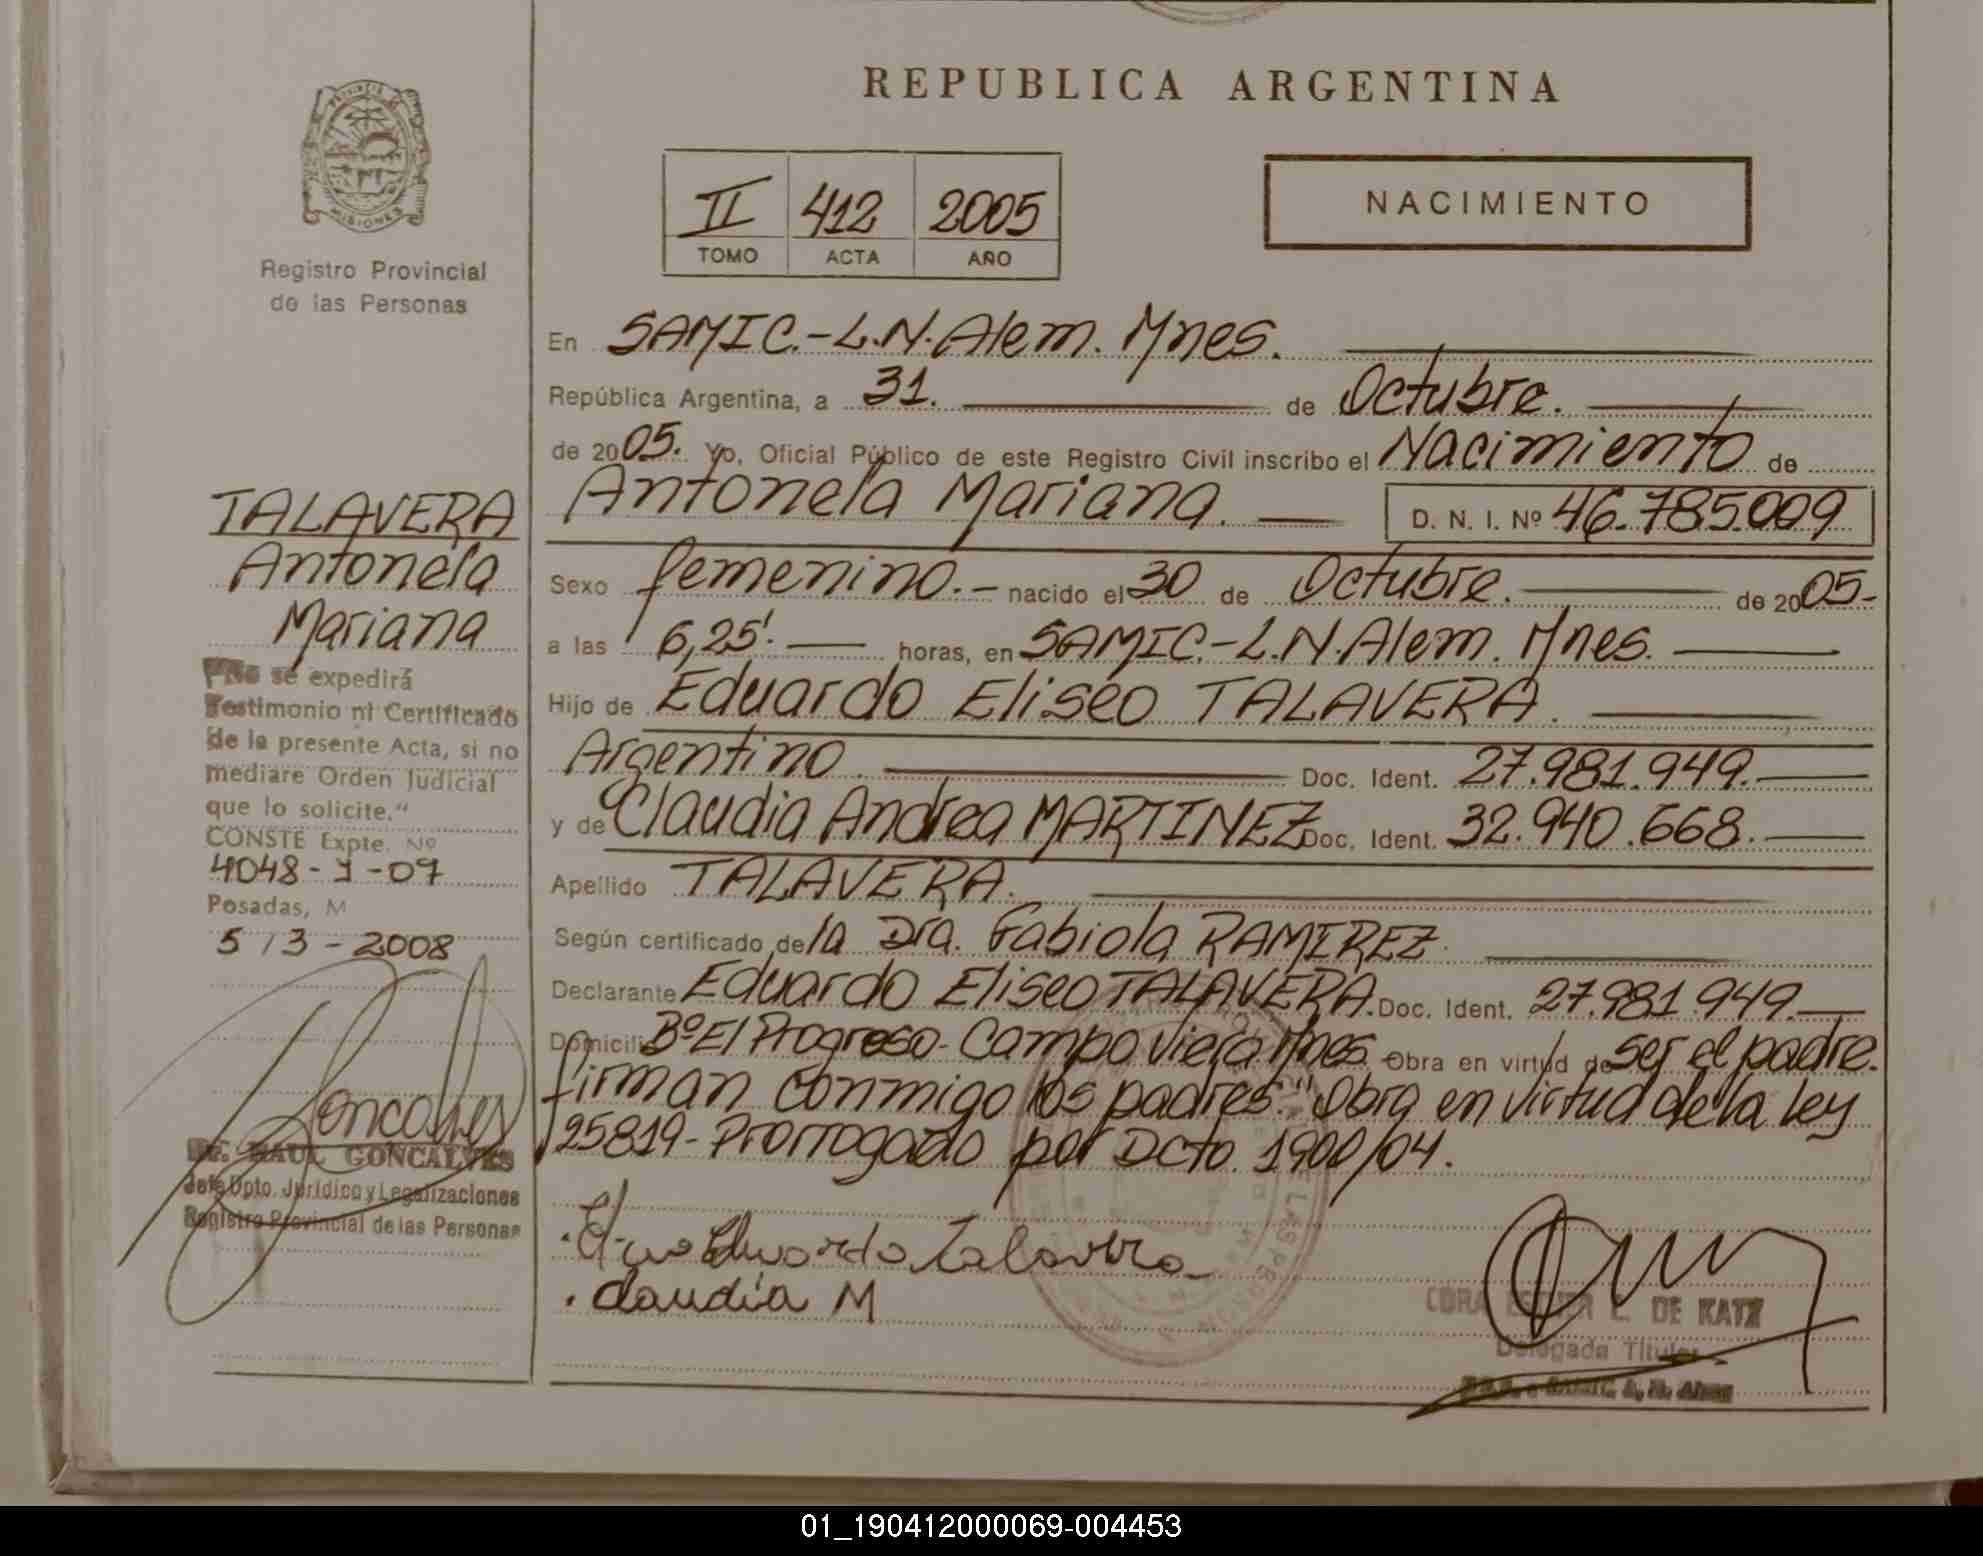 REPUBLICA ARGENTINA
MISIONES
Registro Provincial
de las Personas
II 412 2005
TOMO ACTA AÑO
NACIMIENTO
En SAMIC.-L.N.Alem. Mnes.
República Argentina, a 31. de Octubre.
de 2005. Yo, Oficial Público de este Registro Civil inscribo el Nacimiento de
Antonela Mariana. D. N. I. Nº 46.785.009
Sexo femenino.- nacido el 30 de Octubre. de 2005-
a las 6,25'. horas, en SAMIC.-L.N.Alem. Mnes.
Hijo de Eduardo Eliseo TALAVERA.
Argentino. Doc. Ident. 27.981.949.
y de Claudia Andrea MARTINEZ Doc. Ident. 32.940.668.
Apellido TALAVERA.
Según certificado de la Dra. Fabiola RAMIREZ.
Declarante Eduardo Eliseo TALAVERA. Doc. Ident. 27.981.949.
Domicilio Bº El Progreso- Campo Viera Mnes. Obra en virtud de ser el padre.
firman conmigo los padres." Obra en virtud de la ley
25819- Prorrogado por Dcto. 1900/04.
Eduardo Talavera
. Claudia M
CDRA ESTHER L. DE KATZ
Delegada Titular
TALAVERA
Antonela
Mariana
"No se expedirá
Testimonio ni Certificado
de la presente Acta, si no
mediare Orden Judicial
que lo solicite."
CONSTE Expte. Nº
4048-J-07
Posadas, M
5/3-2008
RAUL GONCALVES
Jefe Dpto. Jurídico y Legalizaciones
Registro Provincial de las Personas
01_190412000069-004453